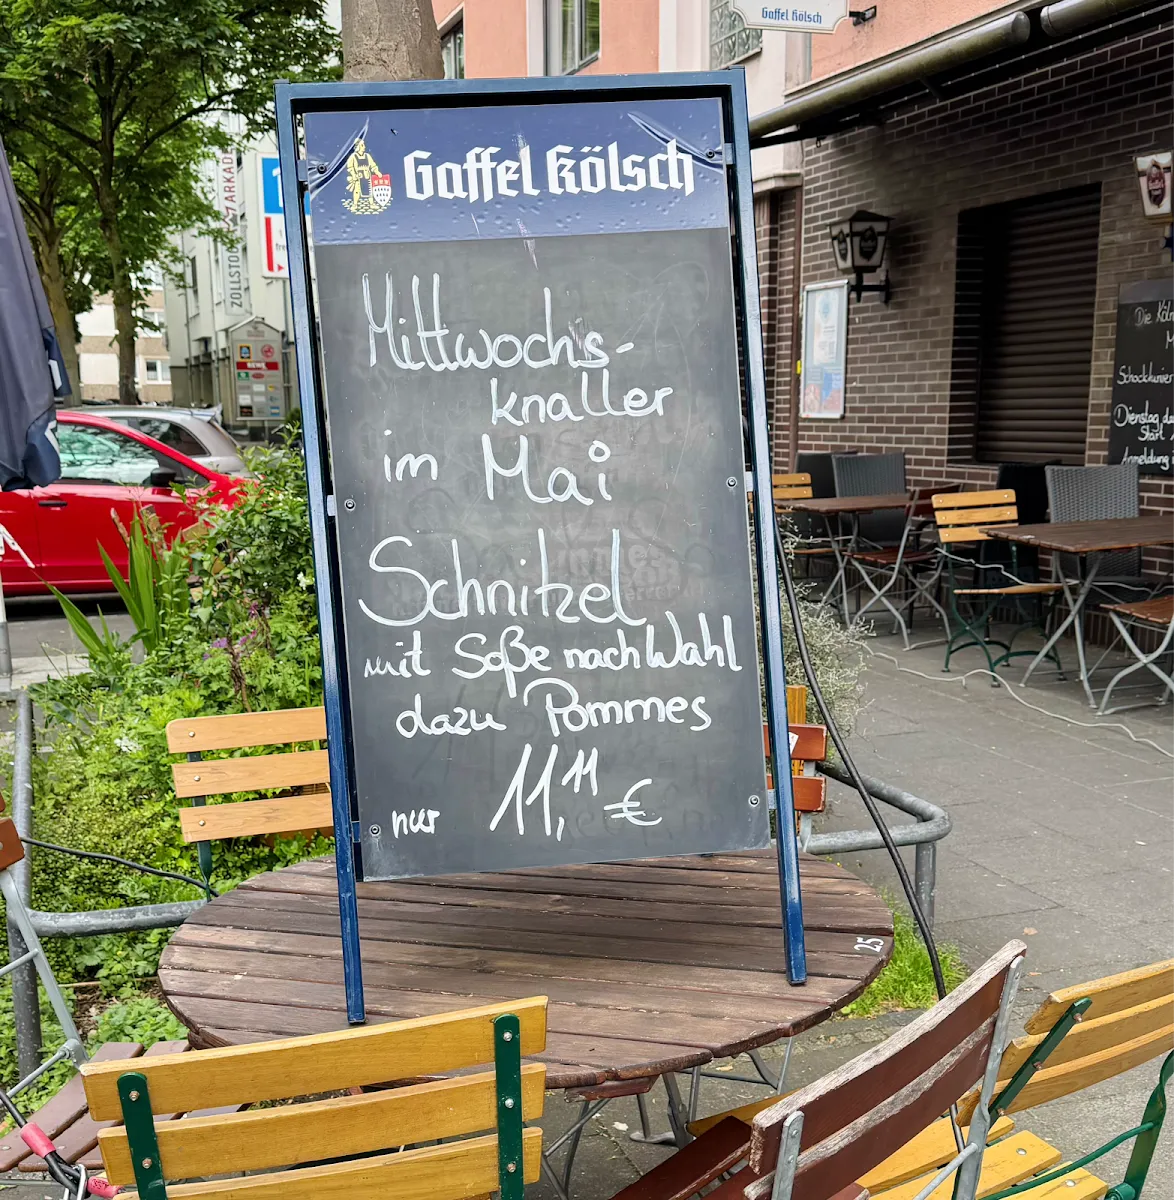 Gaffel Kölsch
Gaffel Kölsch
Mittwochs-
knaller
im Mai
Schnitzel
mit Soße nach Wahl
dazu Pommes
nur 11,11 €
25
ZOLLSTOCK ARKAD
REWE
Die Köln
Dienstag
Start
Anmeldung